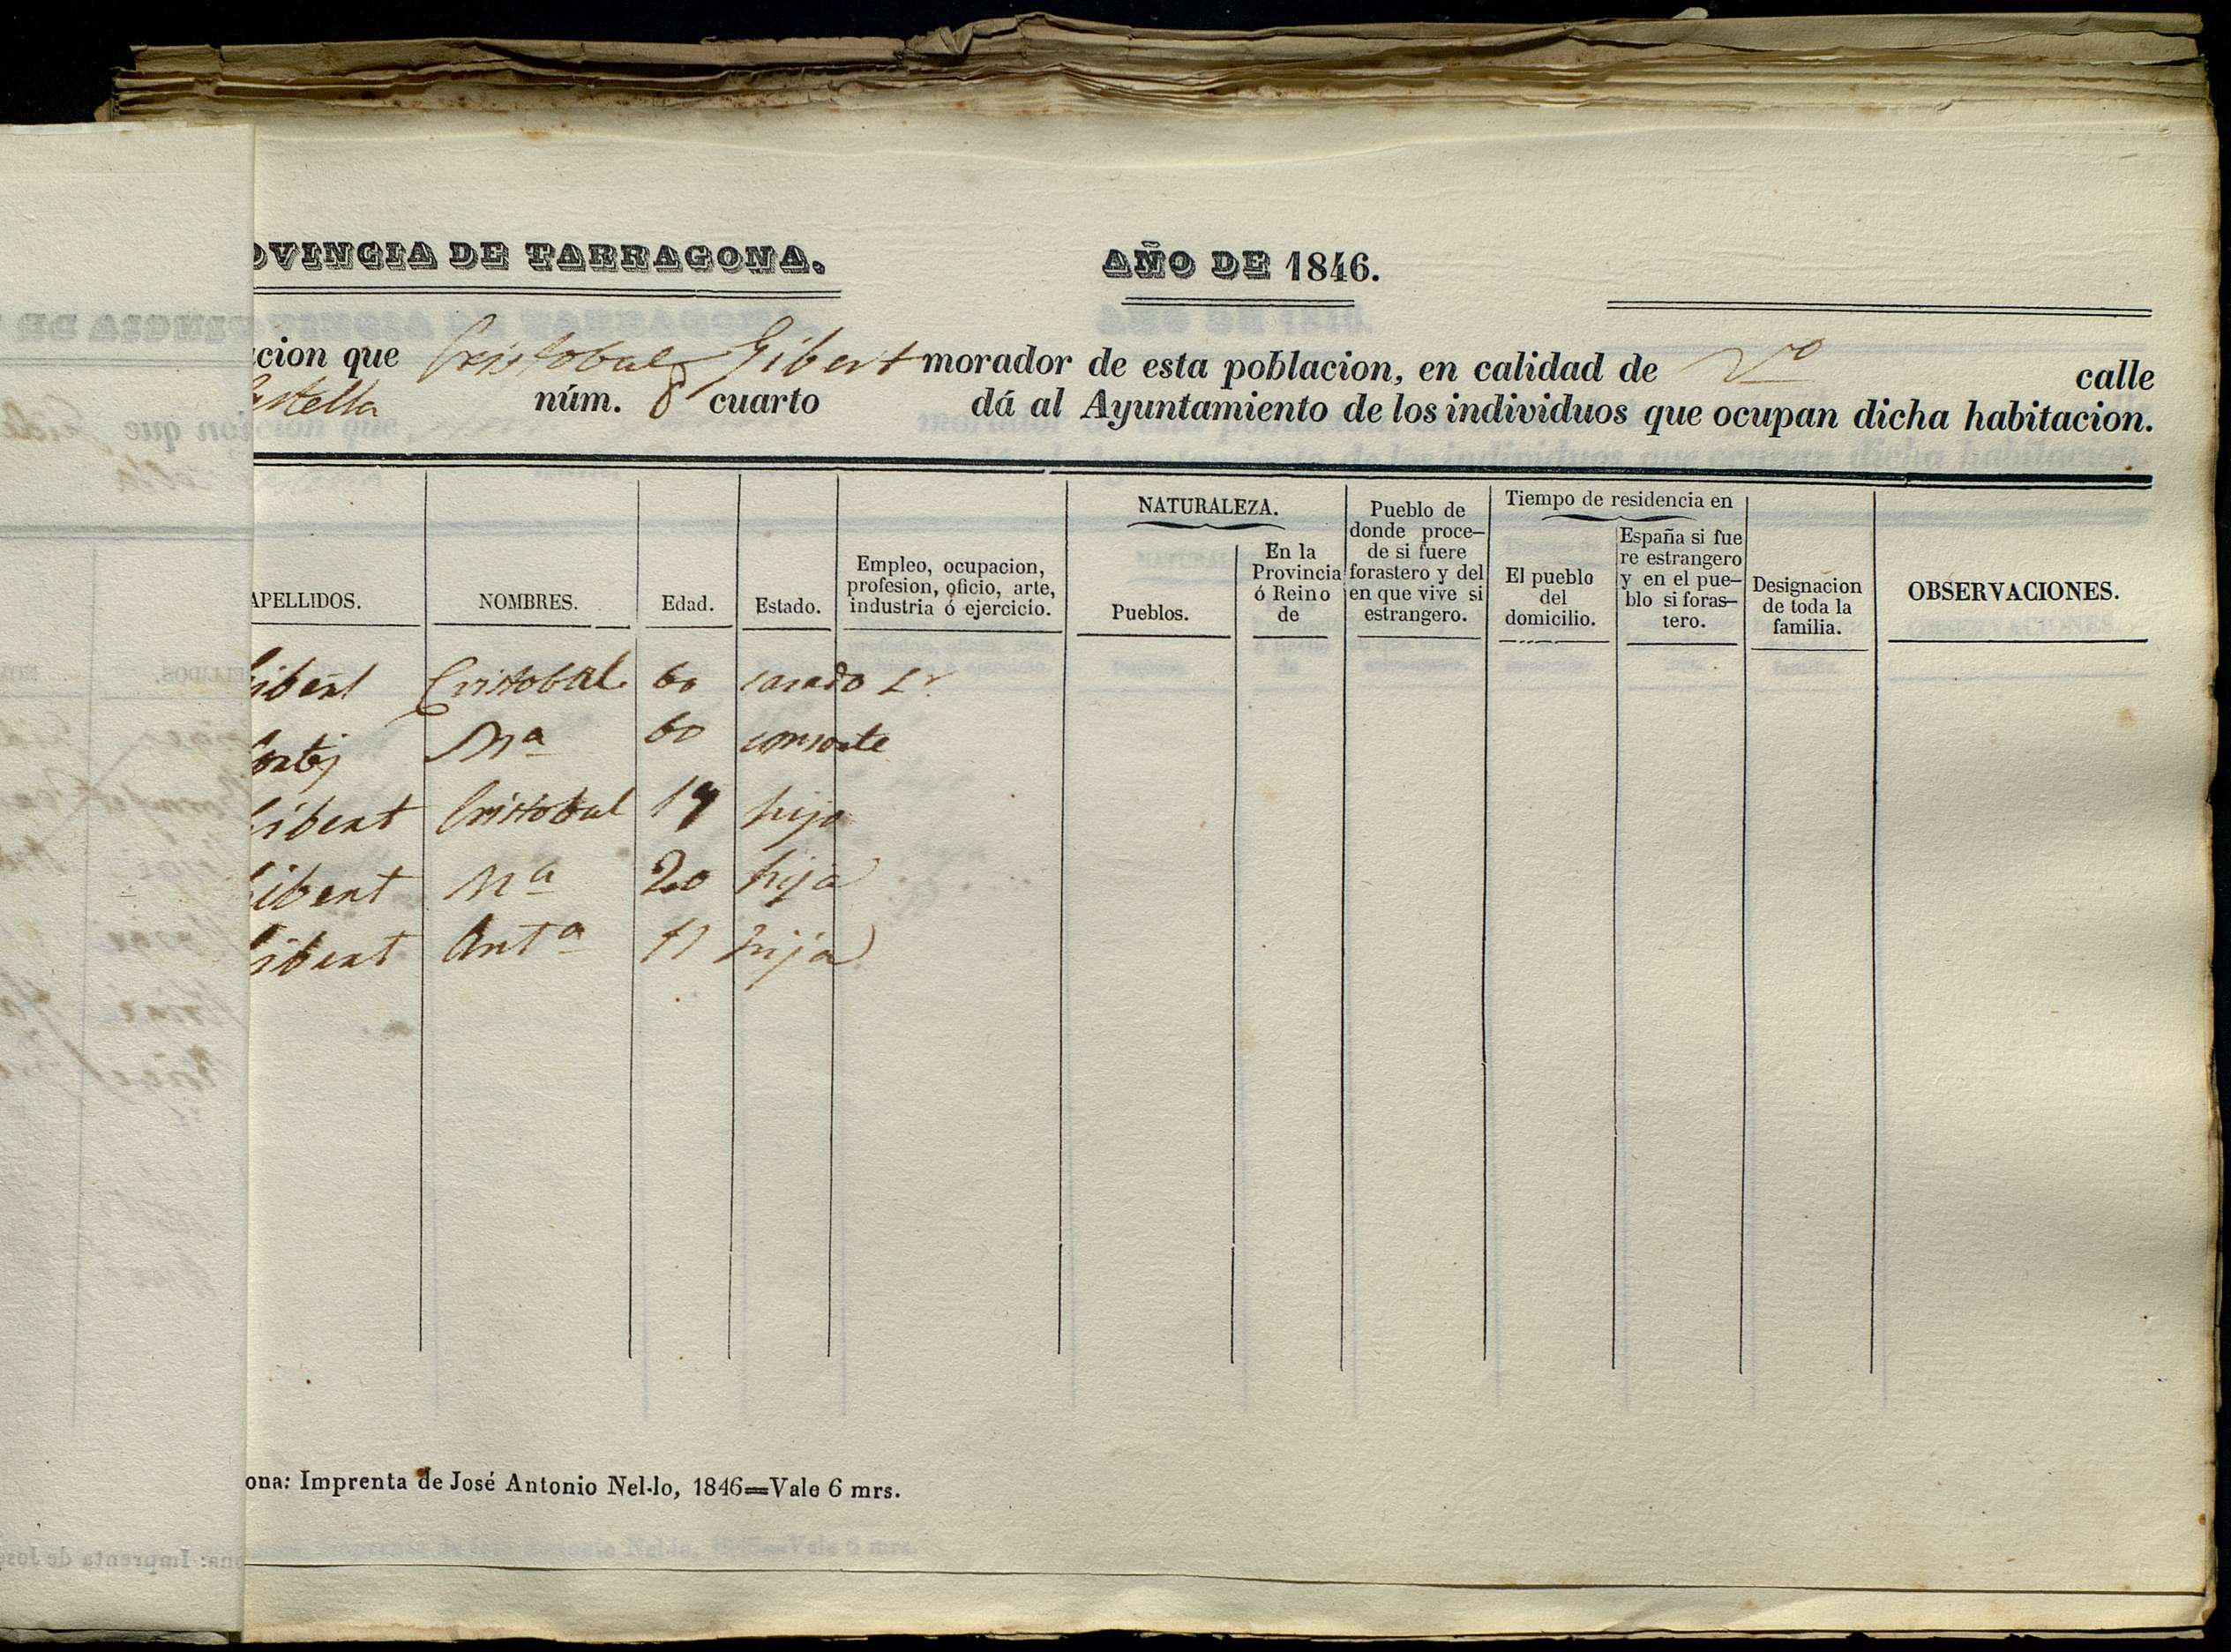 OVINCIA DE TARRAGONA. AÑO DE 1846.
cion que Cristobal Gibert morador de esta poblacion, en calidad de Vº calle
astella núm. 8 cuarto dá al Ayuntamiento de los individuos que ocupan dicha habitacion.
APELLIDOS. NOMBRES. Edad. Estado. Empleo, ocupacion, profesion, oficio, arte, industria ó ejercicio. NATURALEZA. Pueblos. En la Provincia ó Reino de Pueblo de donde proce-de si fuere forastero y del en que vive si estrangero. Tiempo de residencia en El pueblo del domicilio. España si fue re estrangero y en el pue-blo si foras-tero. Designacion de toda la familia. OBSERVACIONES.
ibert Cristobal 60 casado Lr
ortes Mª 60 consorte
ibert Cristobal 19 hijo
ibert Mª 20 hija
ibert Antª 17 hija
ona: Imprenta de José Antonio Nel·lo, 1846=Vale 6 mrs.